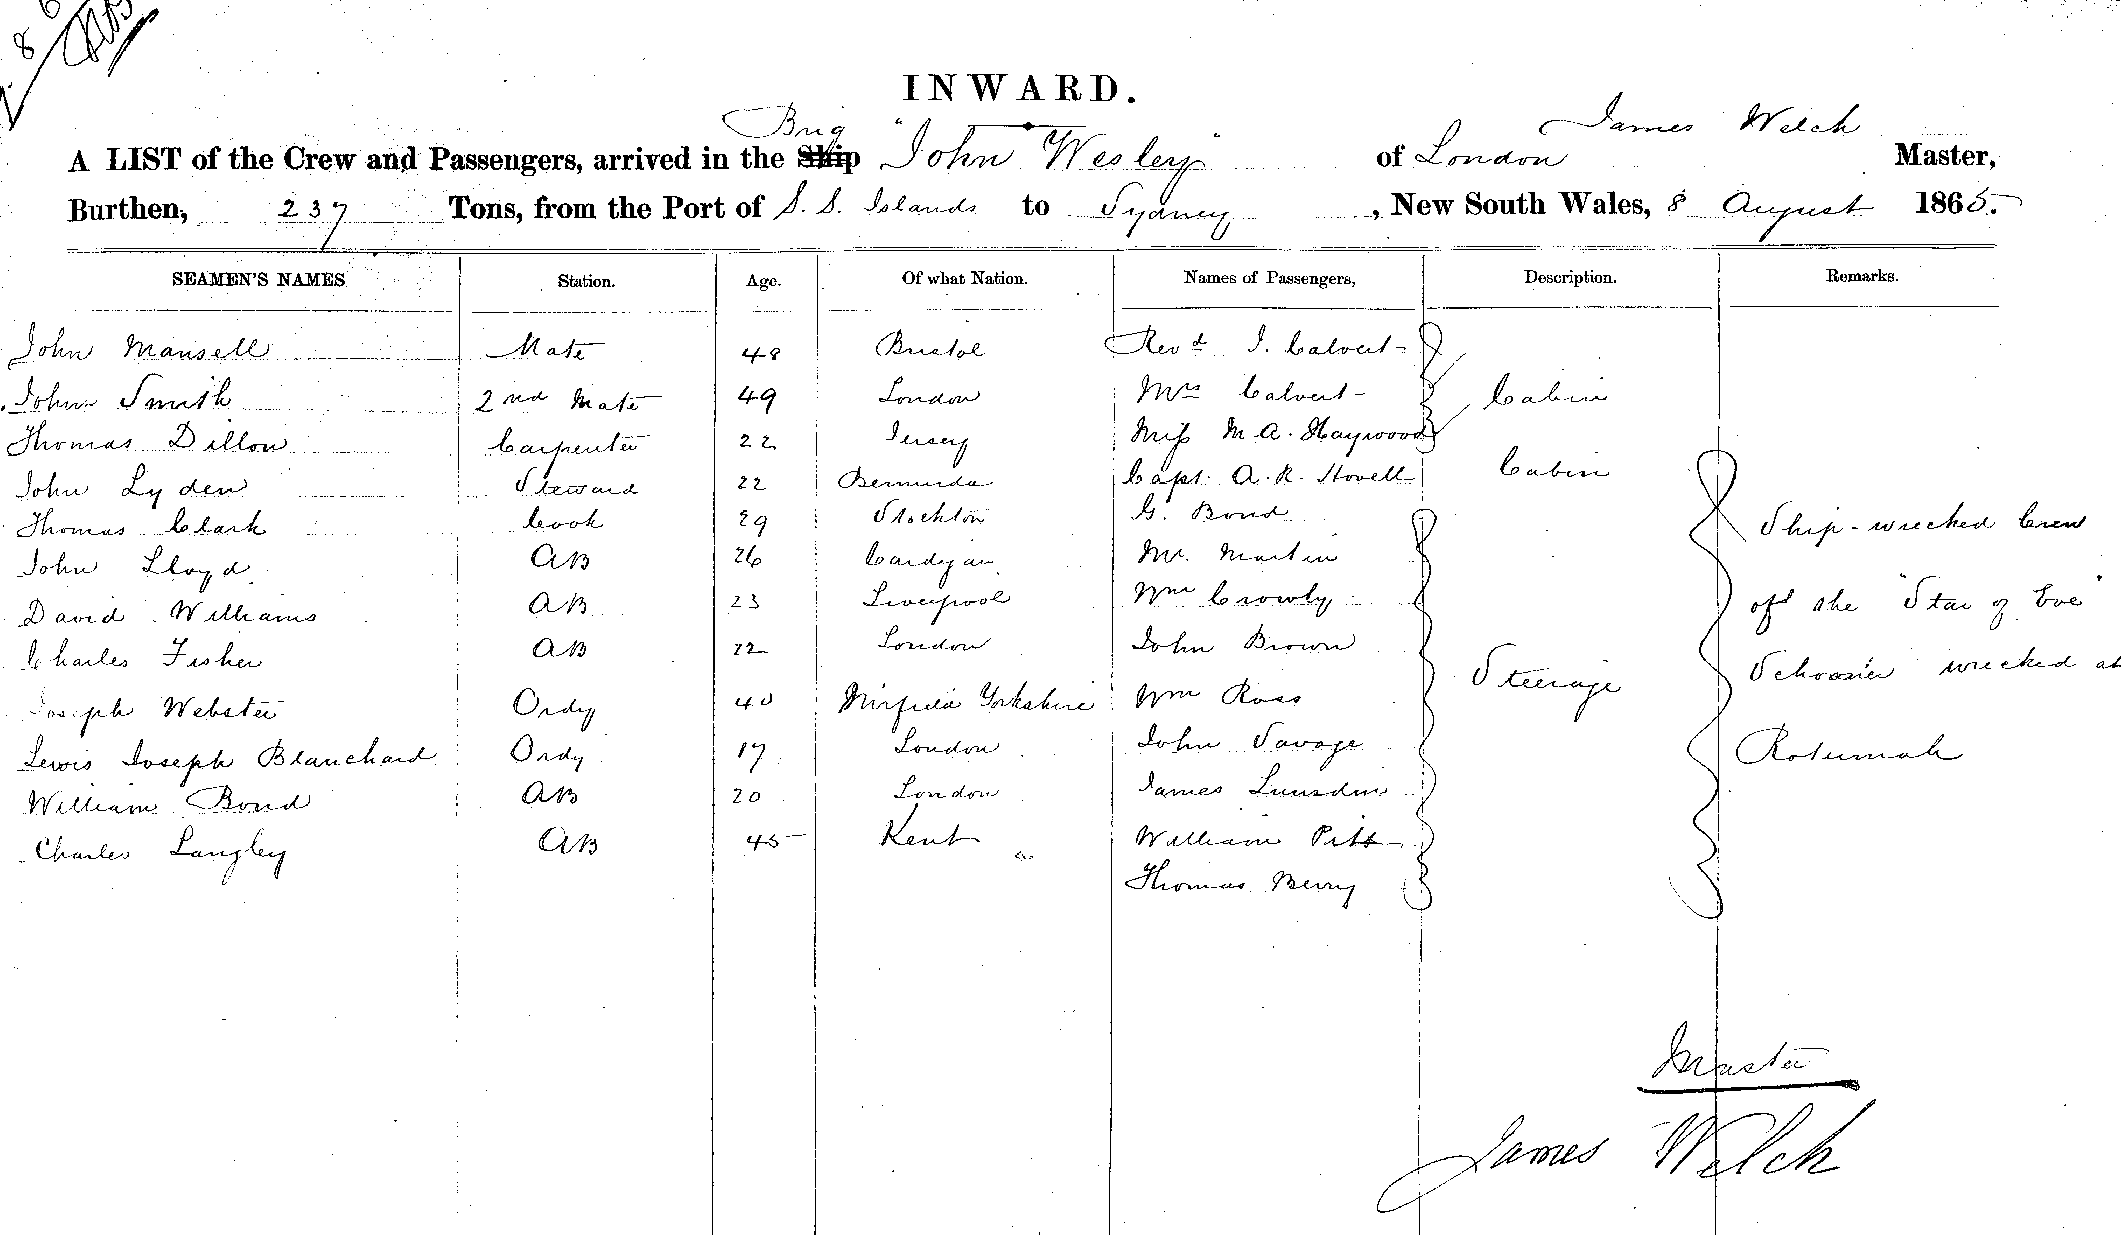 INWARD.
Brig James Welch
A LIST of the Crew and Passengers, arrived in the Ship "John Wesley" of London Master,
Burthen, 237 Tons, from the Port of S. S. Islands to Sydney, New South Wales, 8 August 1865.
SEAMEN'S NAMES Station. Age. Of what Nation. Names of Passengers, Description. Remarks.
John Mansell Mate 48 Bristol Revd J. Calvert
John Smith 2nd Mate 49 London Mrs Calvert Cabin
Thomas Dillon Carpenter 22 Jersey Miss M A. Haywood
John Lyden Steward 22 Bermuda Capt. A. R. Hovell Cabin
Thomas Clark Cook 29 Stockton G. Bond Ship-wrecked Crew
John Lloyd AB 26 Cardigan Mr. Martin
David Williams AB 23 Liverpool Wm Crowly of the "Star of Eve"
Charles Fisher AB 22 London John Brown
Joseph Webster Ordy 40 Mirfield Yorkshire Wm Ross Steerage Schooner wrecked at
Lewis Joseph Blanchard Ordy 17 London John Savage Rotumah
William Bond AB 20 London James Lumsden
Charles Langley AB 45 Kent William Pitt
Thomas Berry
Master
James Welch